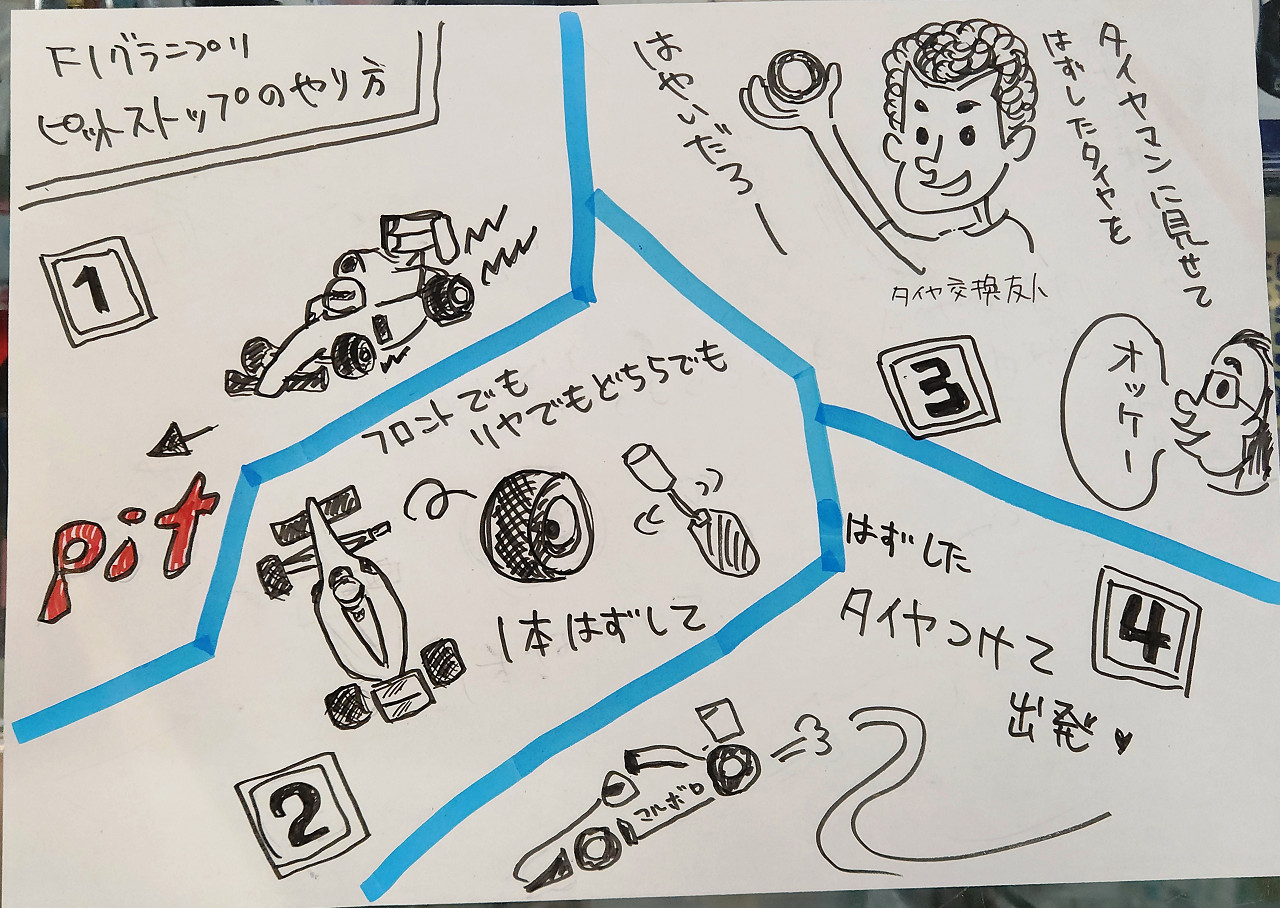 F1グランプリ
ピットストップのやり方
1
pit
フロントでも
リヤでもどちらでも
1本はずして
2
タイヤマンに見せて
はずしたタイヤを
はやいだろー
タイヤ交換友人
3
オッケー
はずした
タイヤつけて
出発♥
4
マルボロ